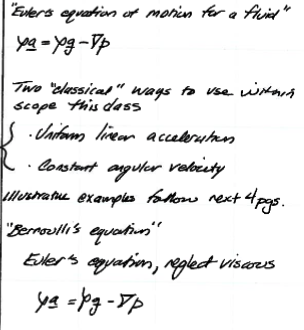 "Euler's equation of motion for a fluid"
ρa = ρg - ∇p
Two "classical" ways to use within
scope this class
· Uniform linear acceleration
· Constant angular velocity
Illustrative examples follow next 4 pgs.
"Bernoulli's equation"
Euler's equation, neglect viscous
ρa = ρg - ∇p